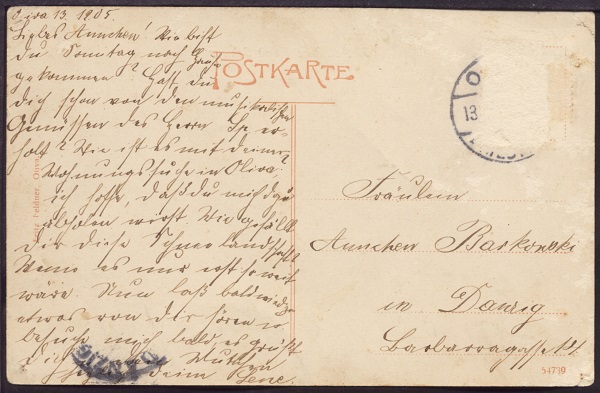 13. 1905.
Liebes Annchen! Wie bist
du Sonntag nach Hause
gekommen? Hast du
dich schon von den musikalischen
Genüssen des Herrn er-
holt? Wie ist es mit deiner
Wohnungssuche in Oliva,
ich hoffe, daß du mich dazu
abholen wirst. Wie gefällt
dir diese Schneelandschaft?
Wenn es nur erst so weit
wäre. Nun laß bald wieder
etwas von dir hören u.
besuche mich bald, es grüßt
dich
deine Lene.
POSTKARTE
Fräulein
Annchen Barkowski
in Danzig
Barbaragasse
13
54719